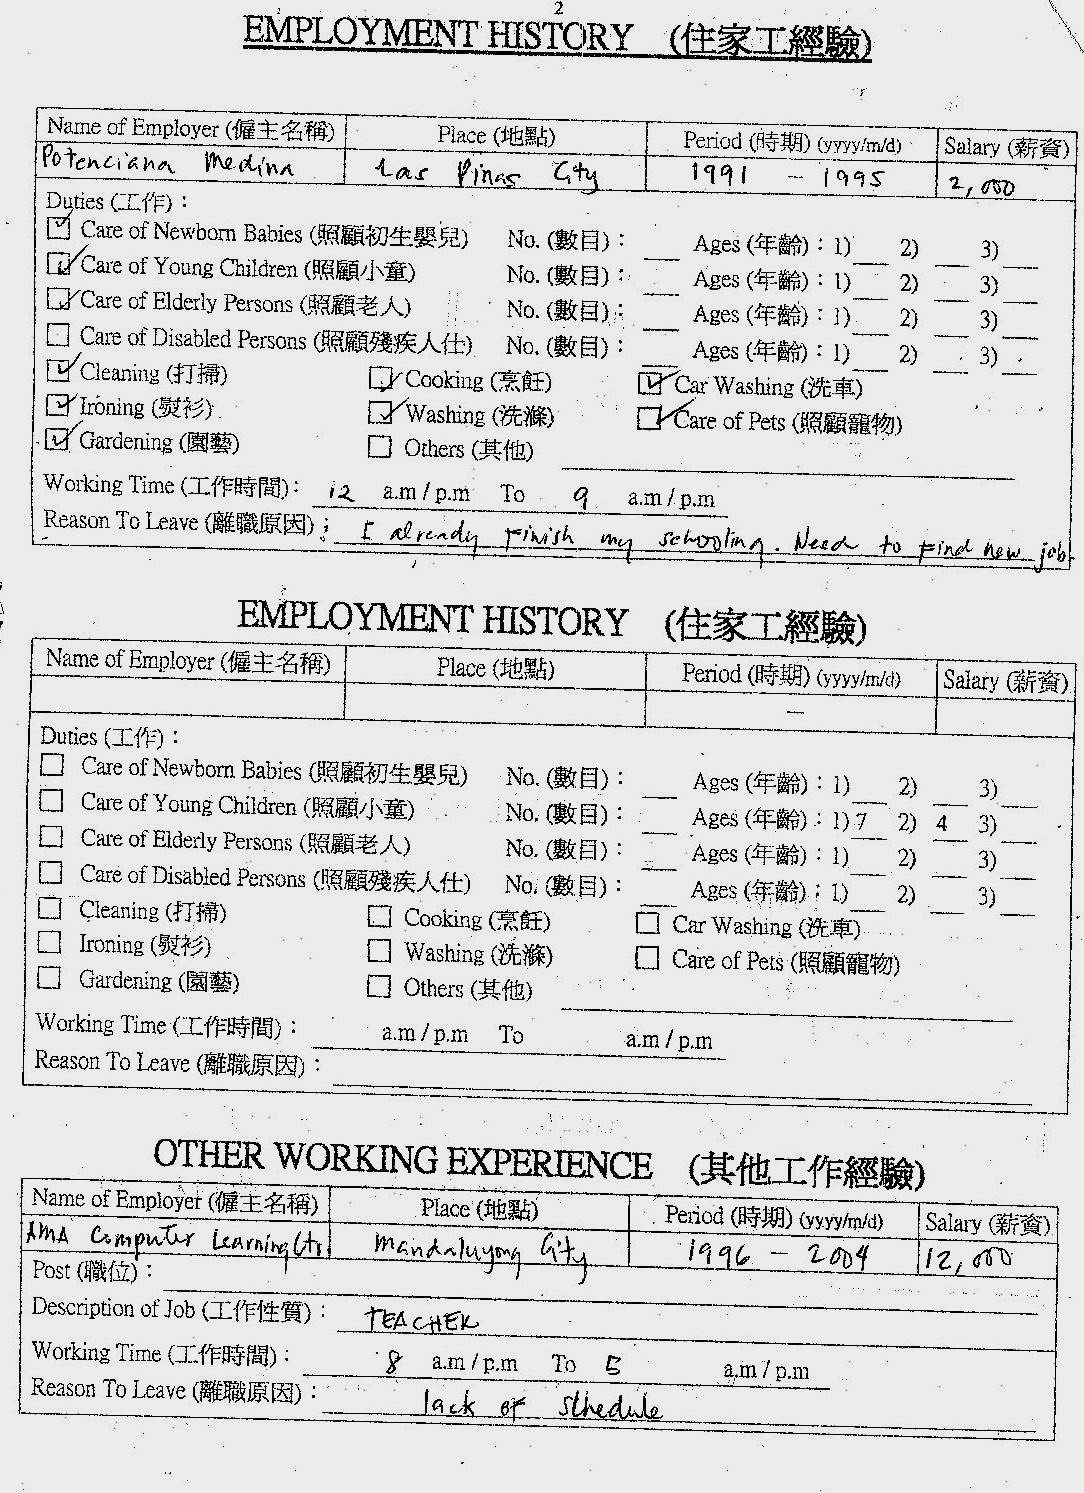 2
EMPLOYMENT HISTORY (住家工經驗)
Name of Employer (僱主名稱) Place (地點) Period (時期) (yyyy/m/d) Salary (薪資)
Potenciana Medina Las Pinas City 1991 - 1995 2,000
Duties (工作) :
Care of Newborn Babies (照顧初生嬰兒) No. (數目) : Ages (年齡) : 1) 2) 3)
Care of Young Children (照顧小童) No. (數目) : Ages (年齡) : 1) 2) 3)
Care of Elderly Persons (照顧老人) No. (數目) : Ages (年齡) : 1) 2) 3)
Care of Disabled Persons (照顧殘疾人仕) No. (數目) : Ages (年齡) : 1) 2) 3)
Cleaning (打掃) Cooking (烹飪) Car Washing (洗車)
Ironing (熨衫) Washing (洗滌) Care of Pets (照顧寵物)
Gardening (園藝) Others (其他)
Working Time (工作時間) : 12 a.m / p.m To 9 a.m / p.m
Reason To Leave (離職原因) : I already Finish my schooling. Need to Find new job.
EMPLOYMENT HISTORY (住家工經驗)
Name of Employer (僱主名稱) Place (地點) Period (時期) (yyyy/m/d) Salary (薪資)
–
Duties (工作) :
Care of Newborn Babies (照顧初生嬰兒) No. (數目) : Ages (年齡) : 1) 2) 3)
Care of Young Children (照顧小童) No. (數目) : Ages (年齡) : 1) 7 2) 4 3)
Care of Elderly Persons (照顧老人) No. (數目) : Ages (年齡) : 1) 2) 3)
Care of Disabled Persons (照顧殘疾人仕) No. (數目) : Ages (年齡) : 1) 2) 3)
Cleaning (打掃) Cooking (烹飪) Car Washing (洗車)
Ironing (熨衫) Washing (洗滌) Care of Pets (照顧寵物)
Gardening (園藝) Others (其他)
Working Time (工作時間) : a.m / p.m To a.m / p.m
Reason To Leave (離職原因) :
OTHER WORKING EXPERIENCE (其他工作經驗)
Name of Employer (僱主名稱) Place (地點) Period (時期) (yyyy/m/d) Salary (薪資)
AMA Computer Learning Ctr Mandaluyong City 1996 - 2004 12,000
Post (職位) :
Description of Job (工作性質) : TEACHER
Working Time (工作時間) : 8 a.m / p.m To 5 a.m / p.m
Reason To Leave (離職原因) : lack of schedule